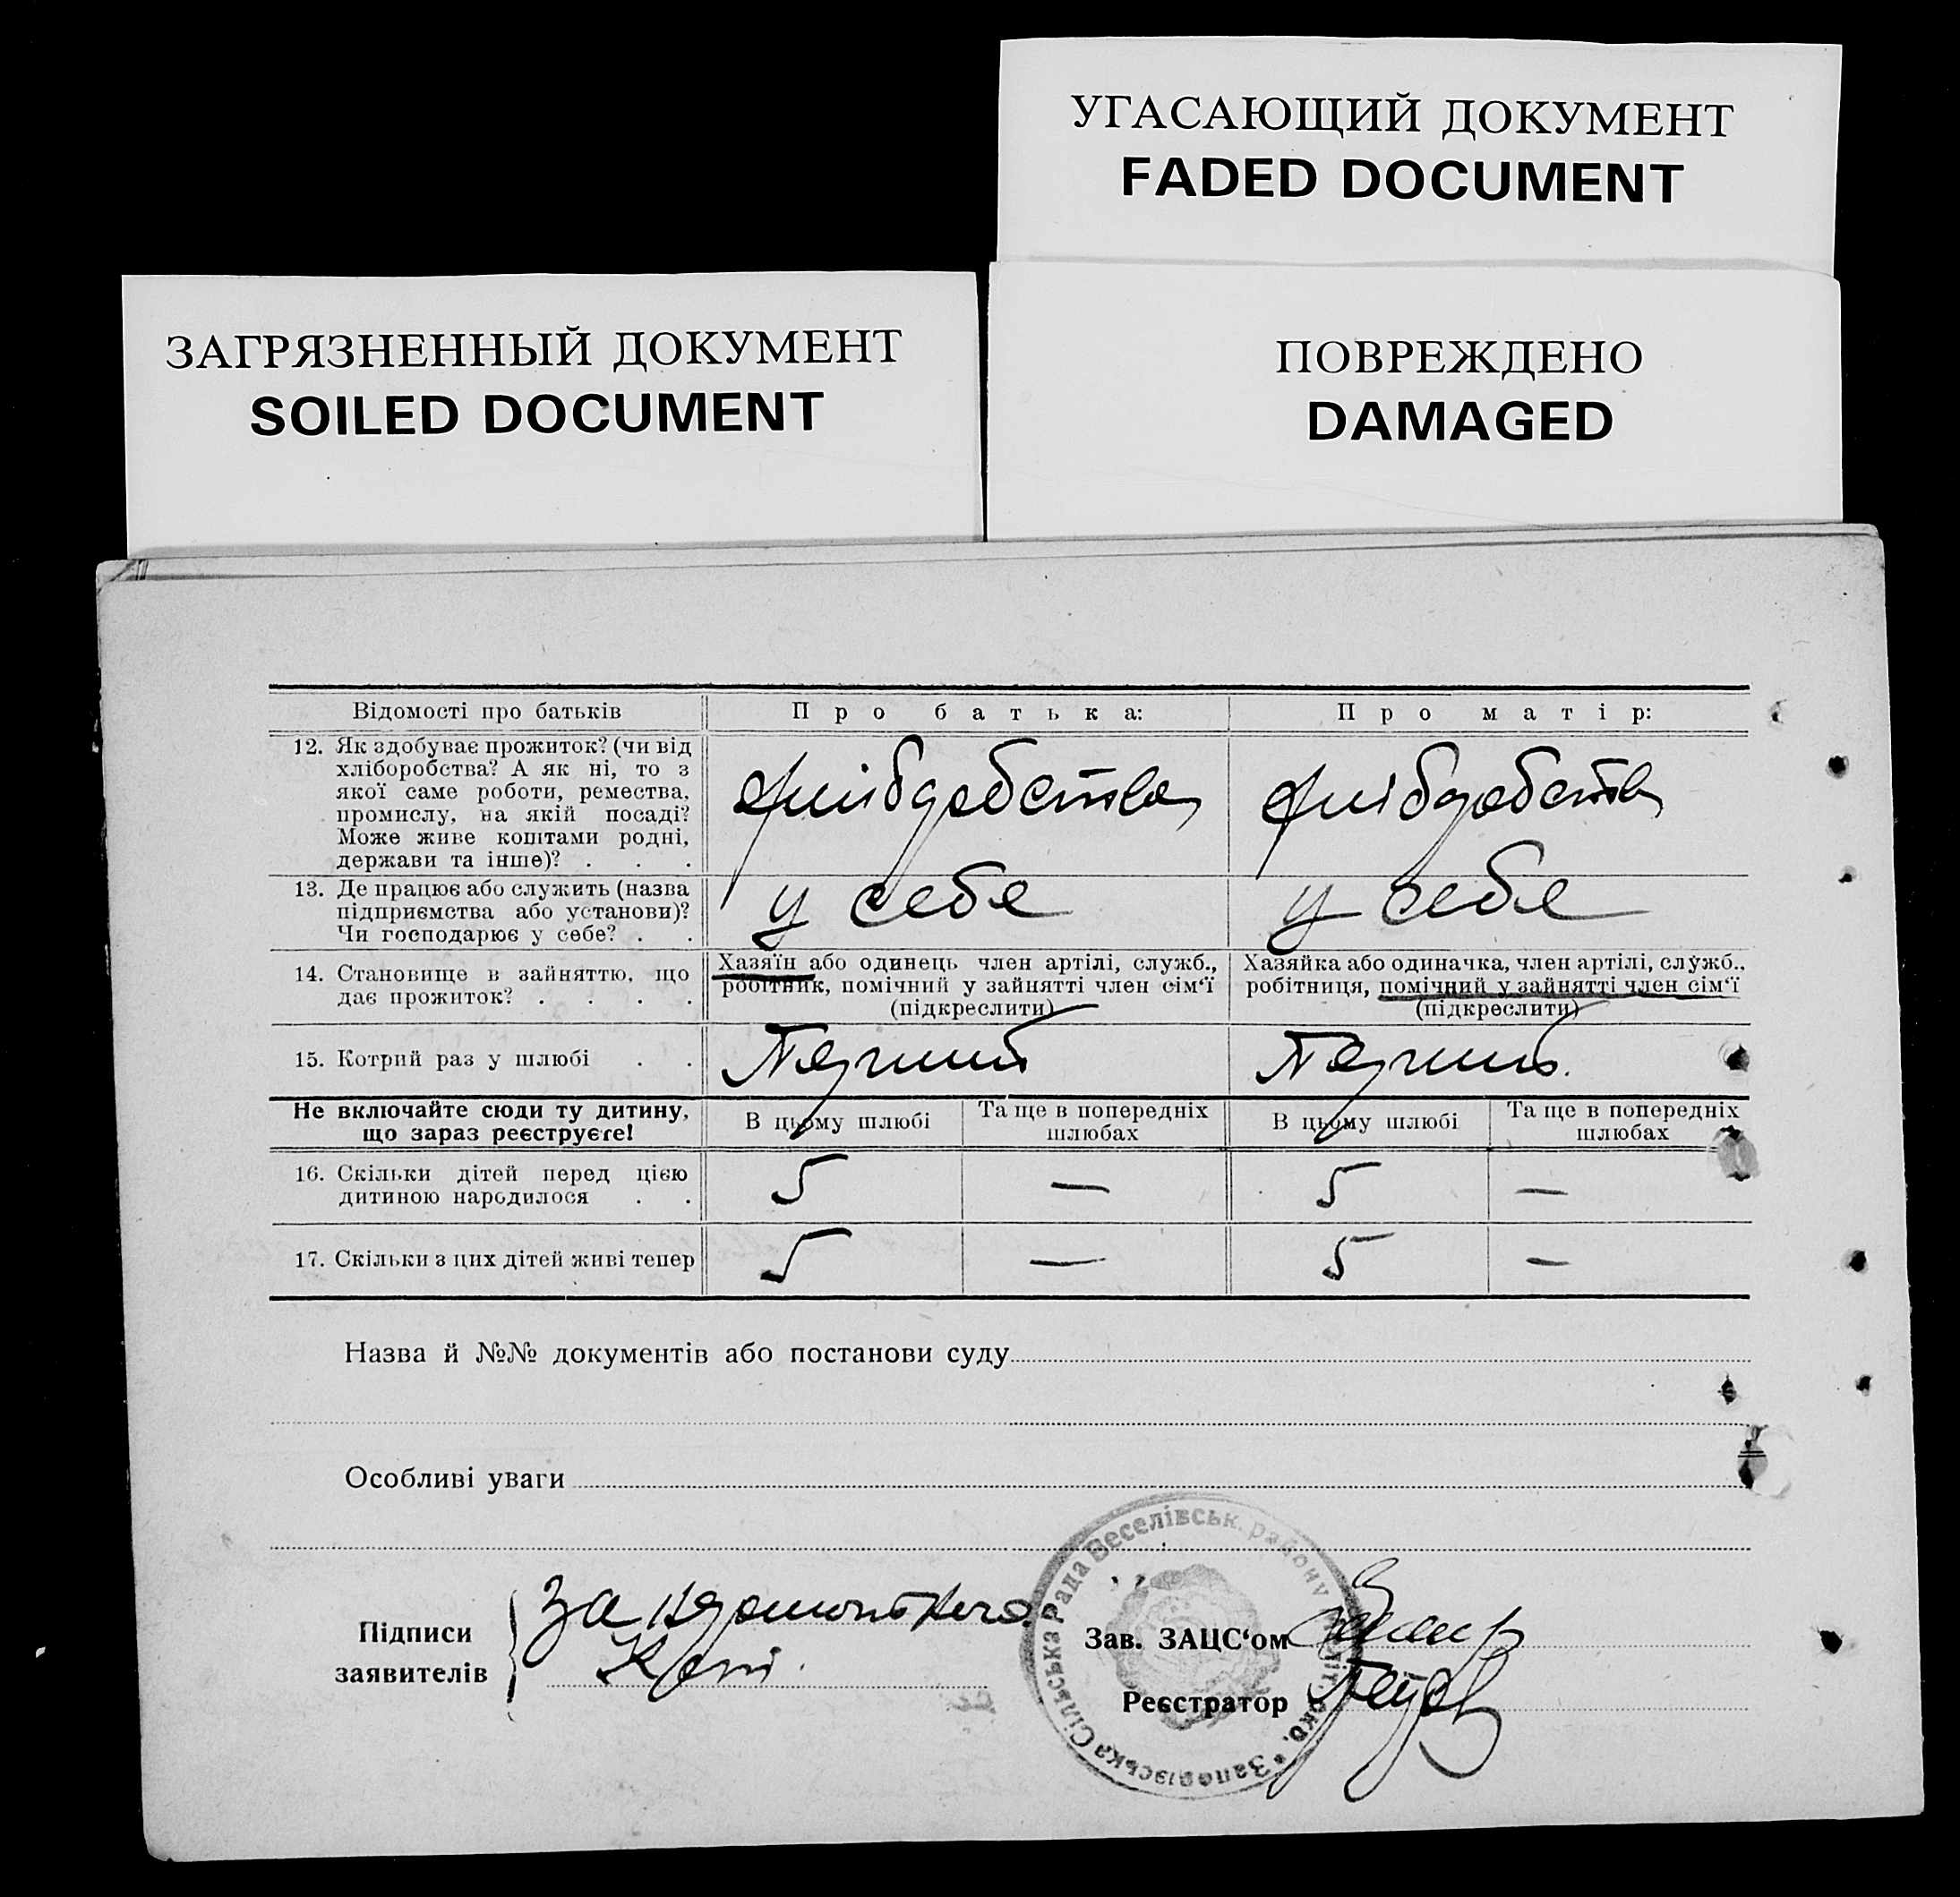 УГАСАЮЩИЙ ДОКУМЕНТ
FADED DOCUMENT
ЗАГРЯЗНЕННЫЙ ДОКУМЕНТ
SOILED DOCUMENT
ПОВРЕЖДЕНО
DAMAGED
Відомості про батьків
Про батька:
Про матір:
12. Як здобуває прожиток? (чи від
хліборобства? А як ні, то з
якої саме роботи, ремества,
промислу, на якій посаді?
Може живе коштами родні,
держави та інше)? . . .
13. Де працює або служить (назва
підприємства або установи)?
Чи господарює у себе? . .
у себе
у себе
14. Становище в зайняттю, що
дає прожиток? . . . .
Хазяїн або одинець член артілі, служб.,
робітник, помічний у зайнятті член сім'ї
(підкреслити)
Хазяйка або одиначка, член артілі, служб.,
робітниця, помічний у зайнятті член сім'ї
(підкреслити)
15. Котрий раз у шлюбі . .
Перший
Не включайте сюди ту дитину,
що зараз реєструєте!
В цьому шлюбі
Та ще в попередніх
шлюбах
В цьому шлюбі
Та ще в попередніх
шлюбах
16. Скільки дітей перед цією
дитиною народилося . .
5
—
5
—
17. Скільки з цих дітей живі тепер
5
—
5
—
Назва й №№ документів або постанови суду
Особливі уваги
Підписи
заявителів
За
Зав. ЗАЦС'ом
Реєстратор
Сільська Рада Веселівськ. району